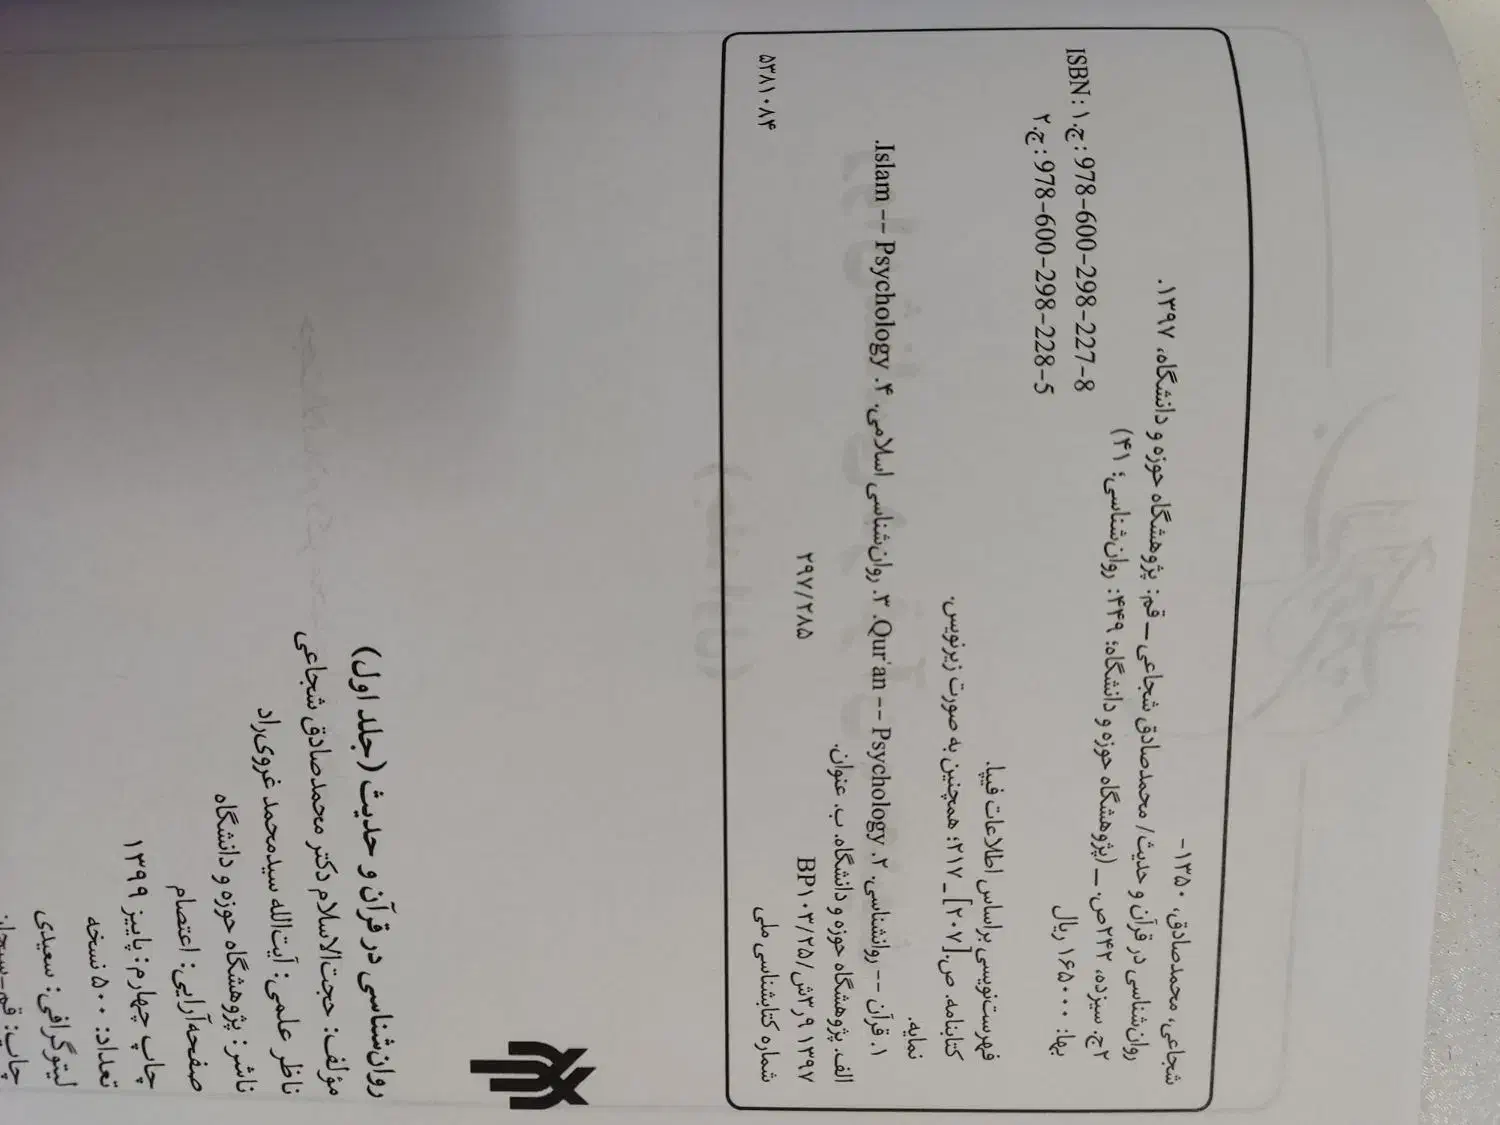 شجاعی، محمدصادق، ۱۳۵۰-
روان‌شناسی در قرآن و حدیث/ محمدصادق شجاعی ــ قم: پژوهشگاه حوزه و دانشگاه، ۱۳۹۷.
۲ج. سیزده، ۲۴۲ص. ــ (پژوهشگاه حوزه و دانشگاه؛ ۴۴۹: روان‌شناسی؛ ۴۱)
بها: ۱۶۵۰۰۰ ریال
ISBN: ۱.ج: 978-600-298-227-8
۲.ج: 978-600-298-228-5
فهرست‌نویسی براساس اطلاعات فیپا.
کتابنامه. ص.[۲۰۷] ــ ۲۱۷؛ همچنین به صورت زیرنویس.
نمایه.
۱. قرآن -- روانشناسی. ۲. Qur'an -- Psychology. ۳. روان‌شناسی اسلامی. ۴. Islam -- Psychology.
الف. پژوهشگاه حوزه و دانشگاه. ب. عنوان.
۱۳۹۷ ۹ر۳ش/۲۵/BP۱۰۳
۲۹۷/۲۸۵
شماره کتابشناسی ملی
۵۳۸۱۰۸۴
روان‌شناسی در قرآن و حدیث (جلد اول)
مؤلف: حجت‌الاسلام دکتر محمدصادق شجاعی
ناظر علمی: آیت‌الله سیدمحمد غروی‌راد
ناشر: پژوهشگاه حوزه و دانشگاه
صفحه‌آرایی: اعتصام
چاپ چهارم: پاییز ۱۳۹۹
تعداد: ۵۰۰ نسخه
لیتوگرافی: سعیدی
چاپ: قم-سبحان